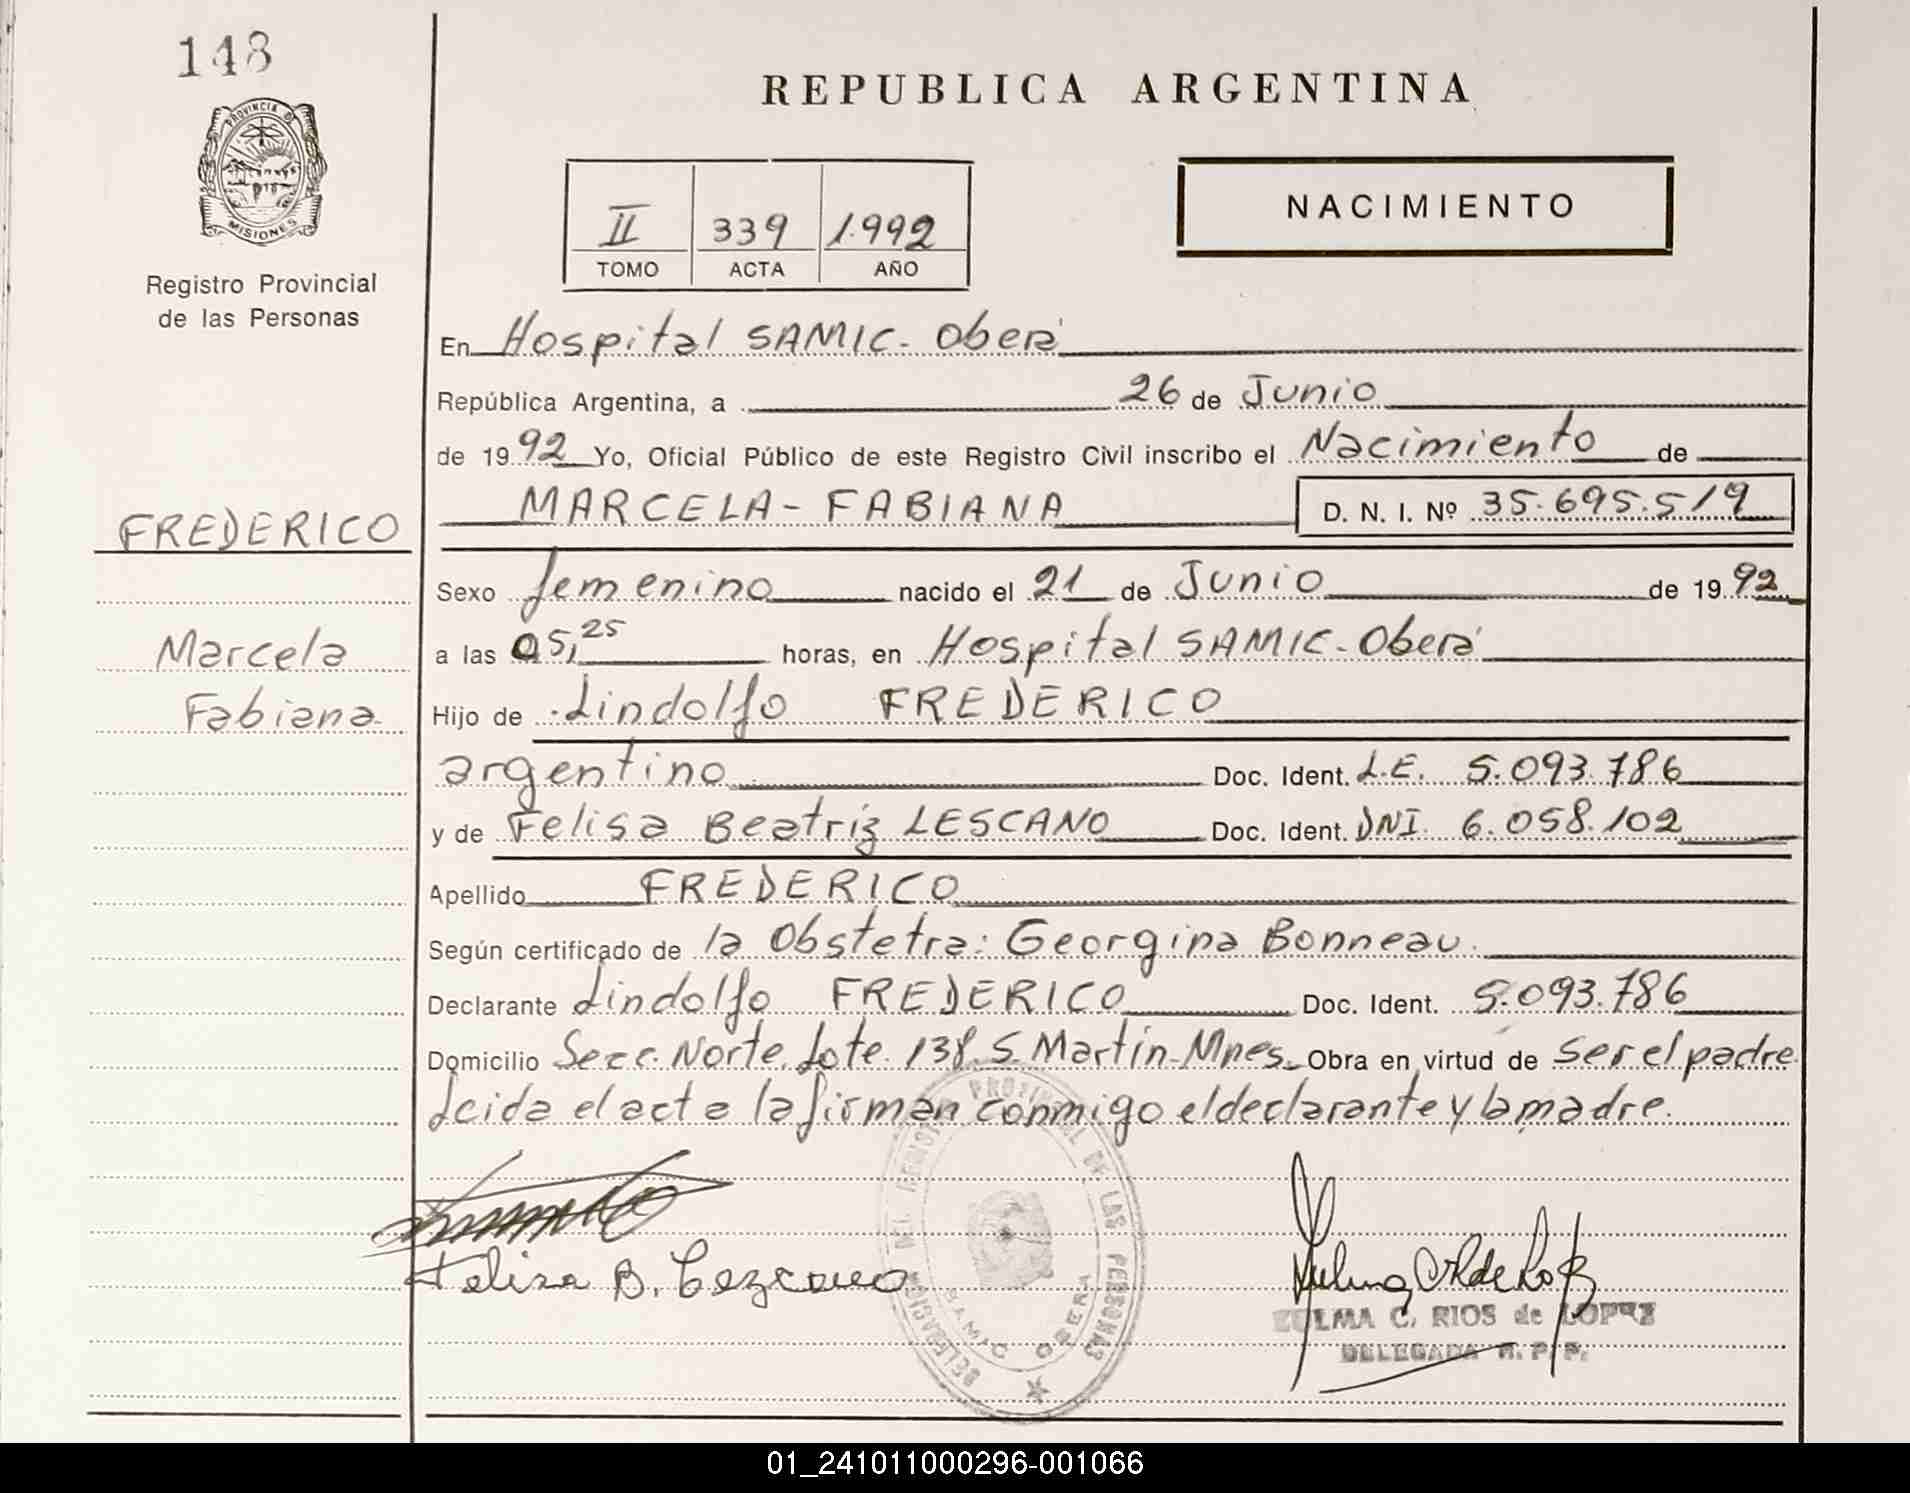 148
PROVINCIA DE
MISIONES
Registro Provincial
de las Personas
FREDERICO
Marcela
Fabiana
REPUBLICA ARGENTINA
II 339 1.992
TOMO ACTA AÑO
NACIMIENTO
En Hospital SAMIC - Oberá
República Argentina, a 26 de Junio
de 1992 Yo, Oficial Público de este Registro Civil inscribo el Nacimiento de
MARCELA - FABIANA D. N. I. Nº 35.695.519
Sexo femenino nacido el 21 de Junio de 1992
a las 05,25 horas, en Hospital SAMIC - Oberá
Hijo de Lindolfo FREDERICO
argentino Doc. Ident. L.E. 5.093.786
y de Felisa Beatríz LESCANO Doc. Ident. DNI. 6.058.102
Apellido FREDERICO
Según certificado de la Obstetra: Georgina Bonneau.
Declarante Lindolfo FREDERICO Doc. Ident. 5.093.786
Domicilio Secc. Norte. Lote. 138. S. Martín - Mnes. Obra en virtud de ser el padre
Leida el acta la firman conmigo el declarante y la madre.
Felisa B. Lezcano
DELEGACION DEL REGISTRO PROVINCIAL DE LAS PERSONAS
SAMIC OBERA
ZULMA C. RIOS de LOPEZ
DELEGADA R. P. P.
01_241011000296-001066